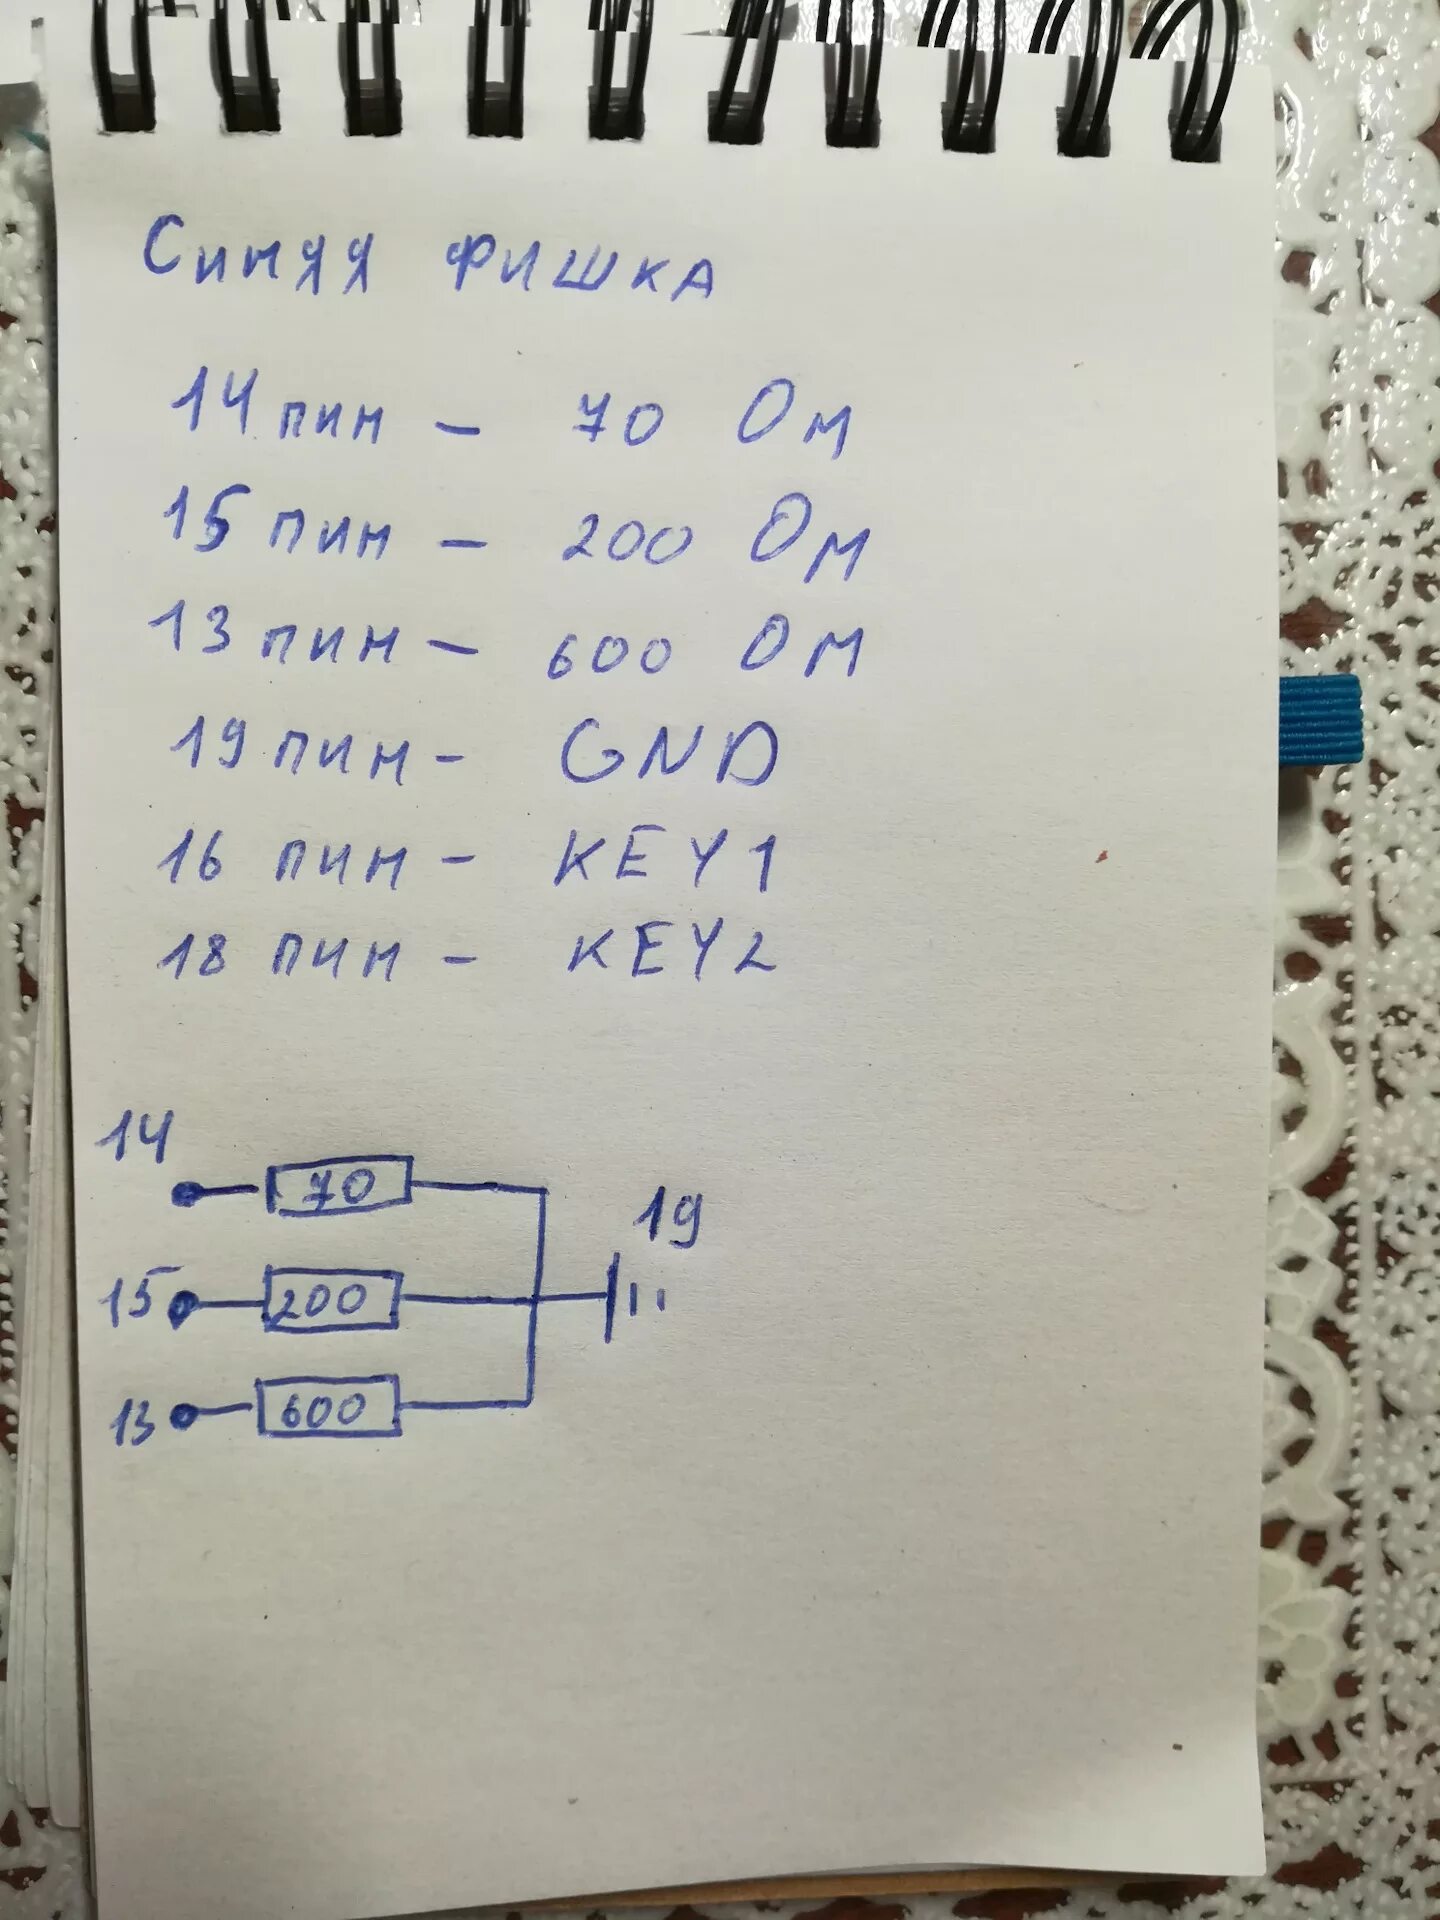 Синяя фишка
14 пин - 70 Ом
15 пин - 200 Ом
13 пин - 600 Ом
19 пин - GND
16 пин - KEY1
18 пин - KEY2
14
70
19
15
200
13
600